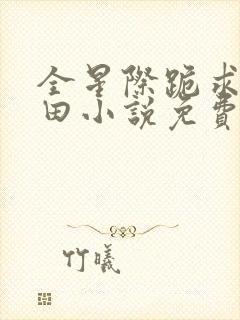 全星際跪求
田小說免費
竹曦